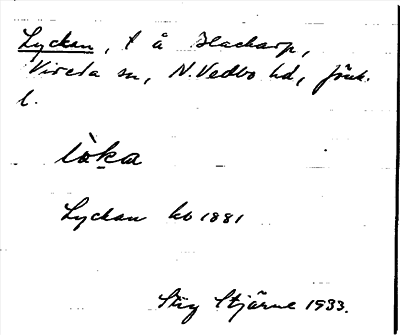 Lyckan, t å Hackarp,
Vireda sn, N. Vedbo hd, Jönk.
l.
lòka
Lyckan kb 1881
Stig Stjärne 1933.